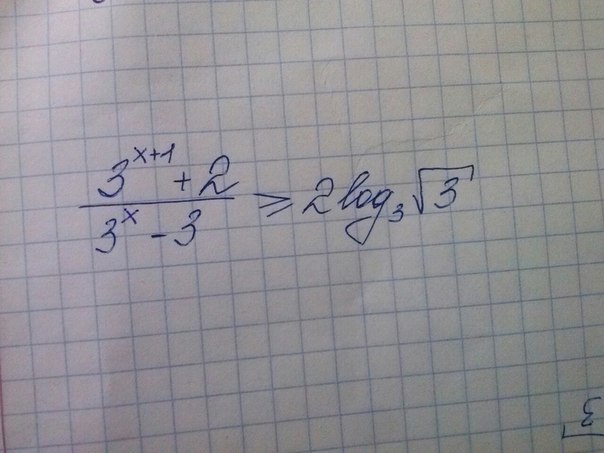 (3^(x+1) + 2)/(3^x - 3) ≥ 2 log_3 √3
3